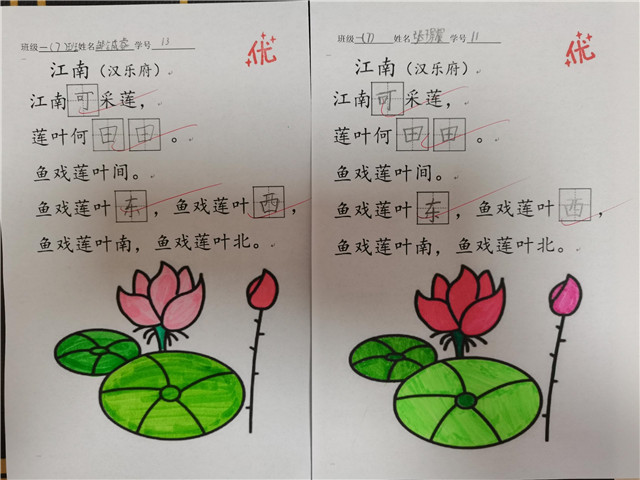 班级 一(7)班 姓名 学号 13
优
江南（汉乐府）
江南可采莲，
莲叶何田田。
鱼戏莲叶间。
鱼戏莲叶东，鱼戏莲叶西，
鱼戏莲叶南，鱼戏莲叶北。
班级 一(7) 姓名 学号 11
优
江南（汉乐府）
江南可采莲，
莲叶何田田。
鱼戏莲叶间。
鱼戏莲叶东，鱼戏莲叶西，
鱼戏莲叶南，鱼戏莲叶北。